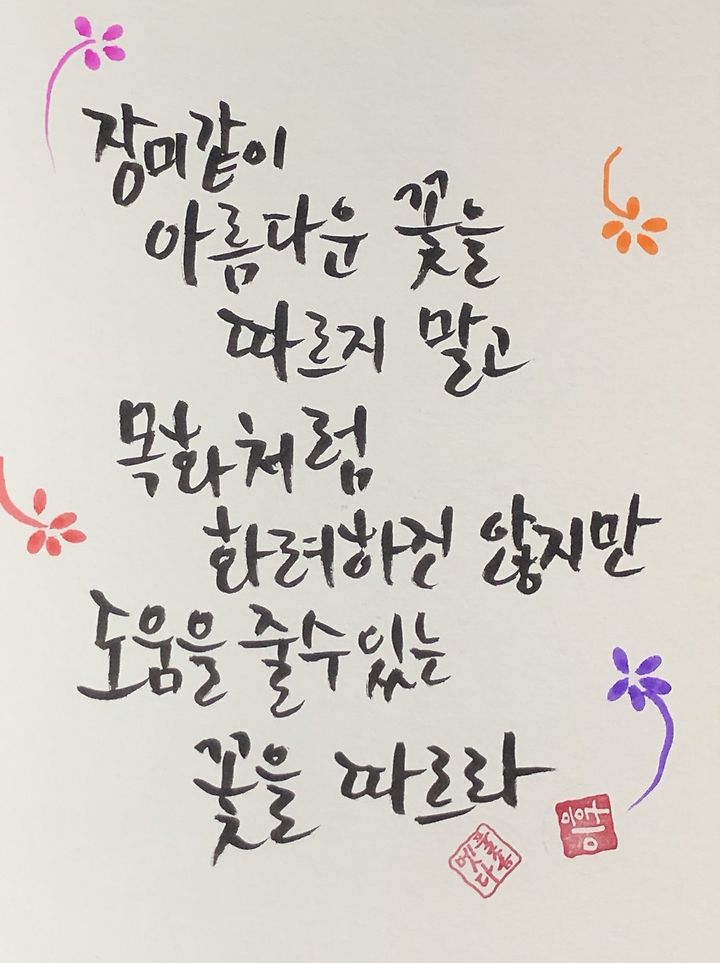 장미같이
아름다운 꽃을
따르지 말고
목화처럼
화려하진 않지만
도움을 줄수있는
꽃을 따르라